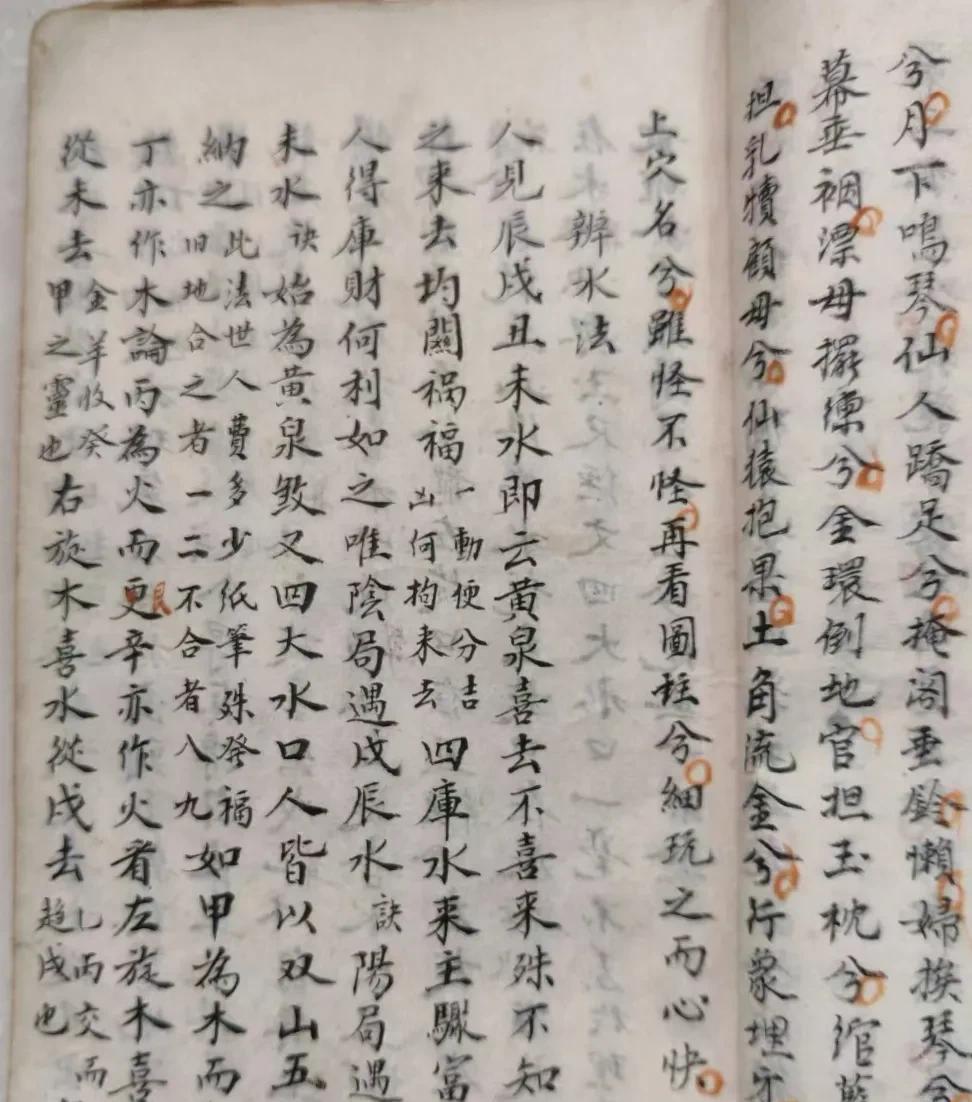 兮月下鳴琴仙人蹻足兮掩閣垂鈴懶婦挨琴兮
幕垂裀漂母擺漂兮金環倒地官担玉枕兮綰藍
担乳犢顧母兮仙猿抱果土角流金兮行象埋牙
上穴名兮雖怪不怪再看圖柱兮細玩之而心快
辨水法
人見辰戌丑未水即云黃泉喜去不喜來殊不知
之來去均關禍福一動便分吉凶何拘來去四庫水來主驟富
人得庫財何利如之唯陰局遇戌辰水訣陽局遇
未水訣始為黃泉煞又四大水口人皆以双山五
納之此法世人費多少紙筆殊發福旧地合之者一二不合者八九如甲為木而
丁亦作木論丙為火而更艮辛亦作火看左旋木喜
從未去金羊收癸甲之靈也右旋木喜水從戌去乙丙交而趨戌也